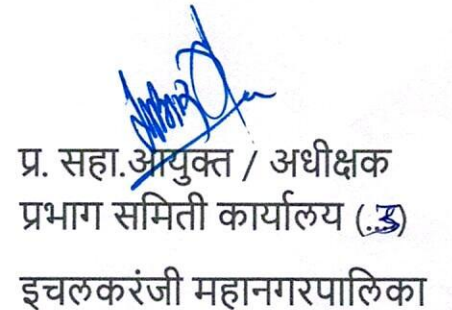 प्र. सहा.आयुक्त / अधीक्षक
प्रभाग समिती कार्यालय (..ड)
इचलकरंजी महानगरपालिका